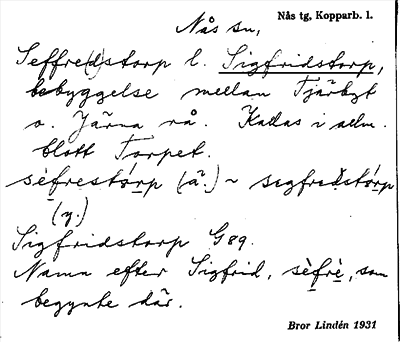 Nås sn,
Nås tg, Kopparb. l.
Seffre(d)storp l. Sigfridstorp,
bebyggelse mellan Tjärbyt
o. Järna rå. Kallas i allm.
blott Torpet.
sèfrestórp (ä.) ~ segfredstórp
(y.)
Sigfridstorp G 89.
Namn efter Sigfrid, sèfrè, som
begynte där.
Bror Lindén 1931